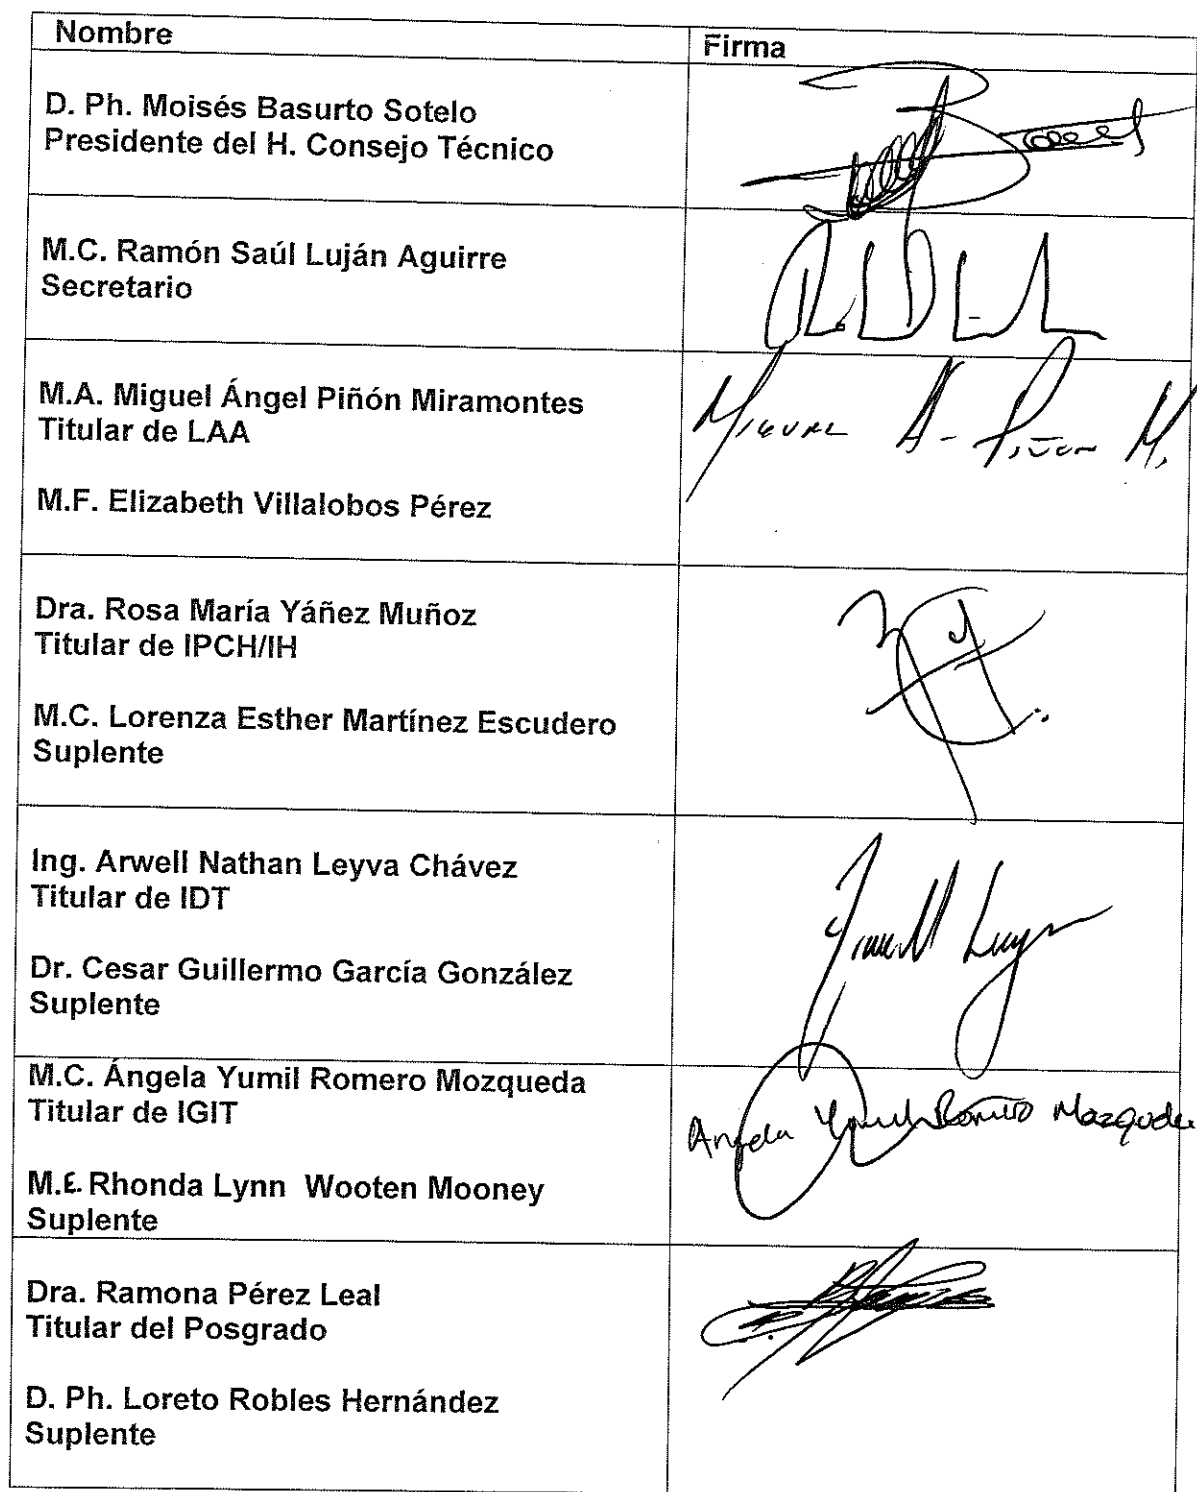 Nombre
Firma
D. Ph. Moisés Basurto Sotelo
Presidente del H. Consejo Técnico
M.C. Ramón Saúl Luján Aguirre
Secretario
M.A. Miguel Ángel Piñón Miramontes
Titular de LAA
Miguel A- Piñon M.
M.F. Elizabeth Villalobos Pérez
Dra. Rosa María Yáñez Muñoz
Titular de IPCH/IH
M.C. Lorenza Esther Martínez Escudero
Suplente
Ing. Arwell Nathan Leyva Chávez
Titular de IDT
Dr. Cesar Guillermo García González
Suplente
M.C. Ángela Yumil Romero Mozqueda
Titular de IGIT
Angela Yumil Romero Mozqueda
M.E. Rhonda Lynn Wooten Mooney
Suplente
Dra. Ramona Pérez Leal
Titular del Posgrado
D. Ph. Loreto Robles Hernández
Suplente